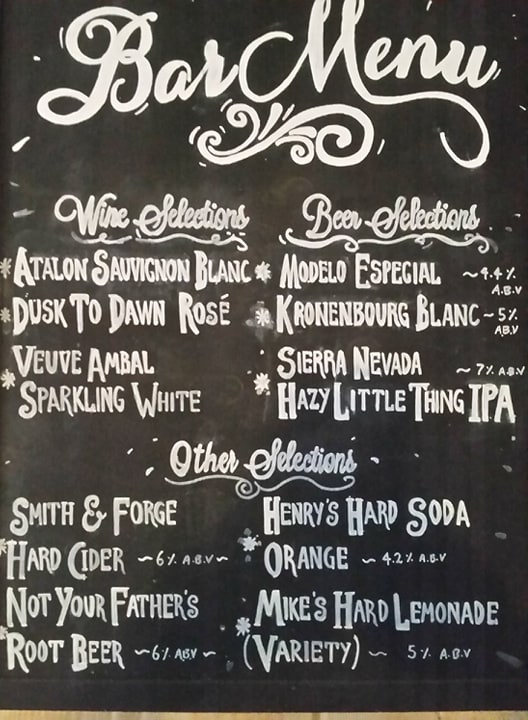 Bar Menu
Wine Selections
* ATALON SAUVIGNON BLANC
* DUSK TO DAWN ROSÉ
* VEUVE AMBAL
SPARKLING WHITE
Beer Selections
* MODELO ESPECIAL ~4.4%
A.B.V
* KRONENBOURG BLANC ~5%
ABV
* SIERRA NEVADA ~ 7% A.B.V
HAZY LITTLE THING IPA
Other Selections
* SMITH & FORGE
HARD CIDER ~6% A.B.V~
* NOT YOUR FATHER'S
ROOT BEER ~6% ABV ~
* HENRY'S HARD SODA
ORANGE ~ 4.2% A.B.V
* MIKE'S HARD LEMONADE
(VARIETY) ~ 5% A.B.V